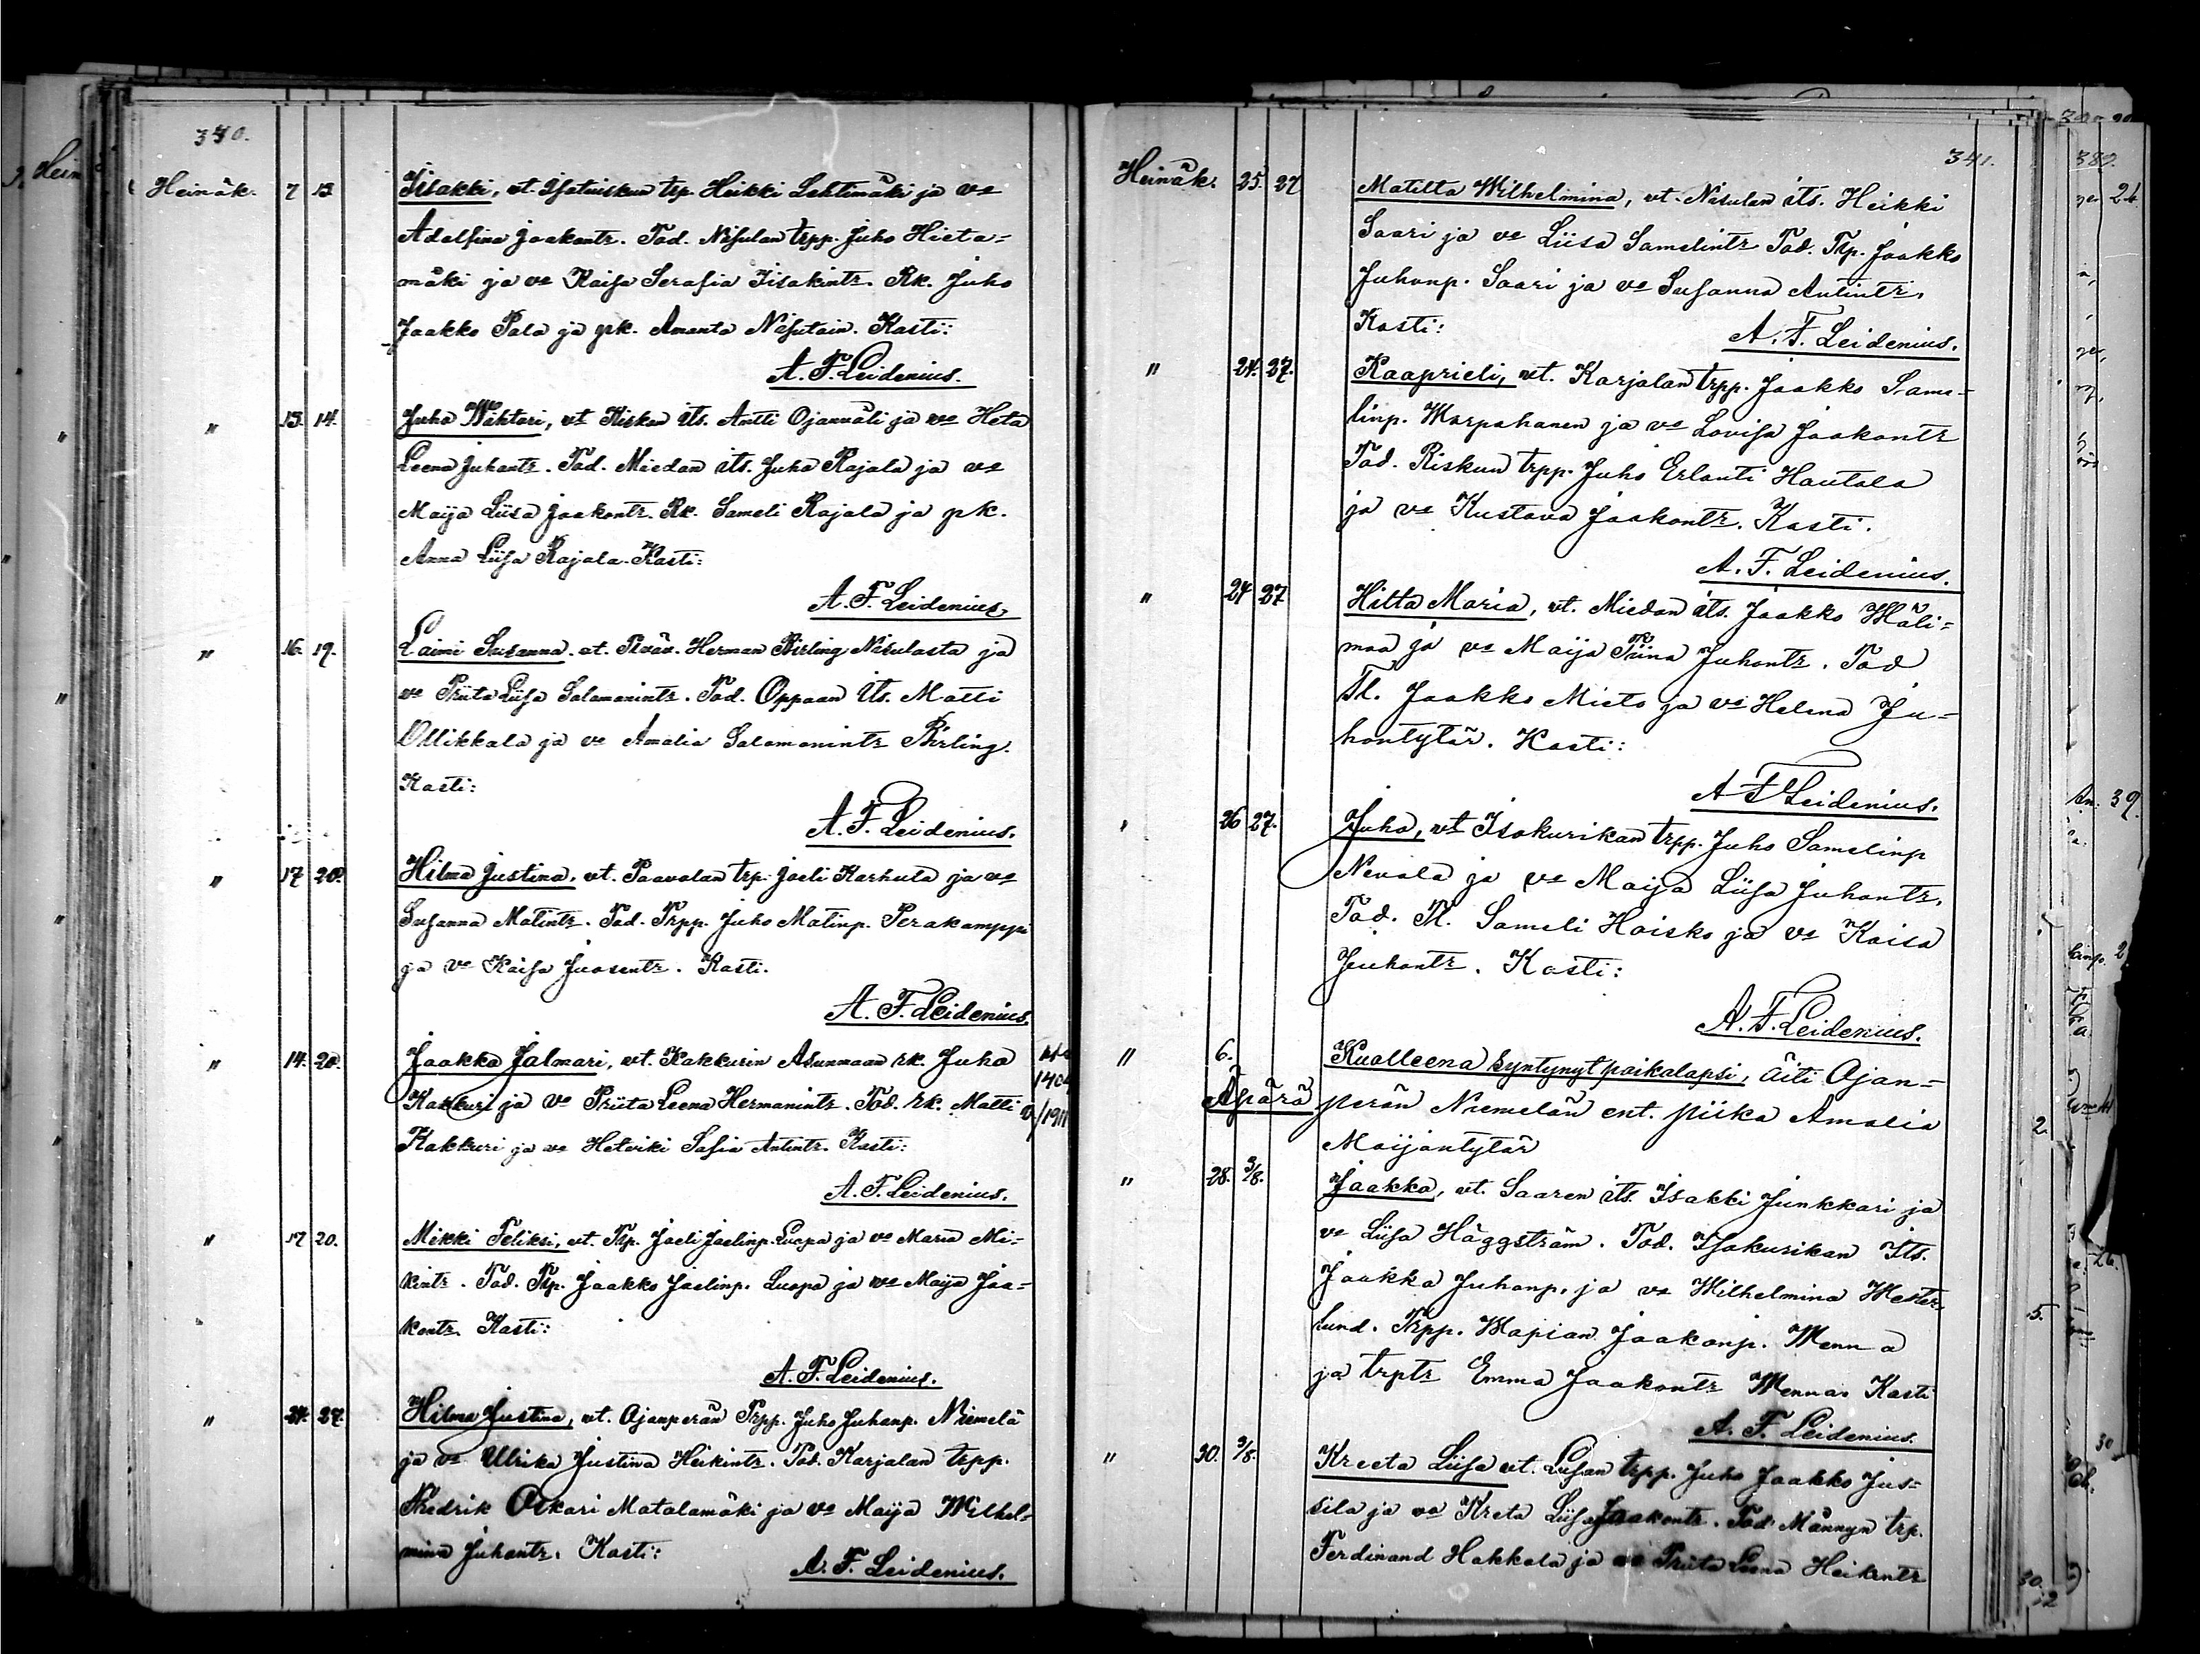 340.
Heinäk. 7 13 Iisakki, vt. Isotuiskun trp. Heikki Lehtimäki ja vo
Adolfina Jaakontr. Tod. Nisulan trpp. Juho Hieta=
mäki ja vo Kaisa Serafia Iisakintr. Rk. Juho
Jaakko Pala ja pk. Amanta Nisutain. Kasti:
A. F. Leidenius.
" 13. 14. Juho Wihtori, vt Riskun its. Antti Ojanväli ja vo Heta
Leena Juhantr. Tod. Miedan its. Juha Rajala ja vo
Maija Liisa Jaakontr. Rk. Sameli Rajala ja pk.
Anna Liisa Rajala. Kasti:
A. F. Leidenius.
" 16. 19. Laimi Susanna. vt. Herman Birling Nisulasta ja
vo Priita Liisa Salomonintr. Tod. Oppaan its. Matti
Ollikkala ja vo Amalia Salomonintr Birling.
Kasti:
A. F. Leidenius.
" 17 20. Hilma Justina, vt. Paavolan trp. Joeli Karhula ja vo
Susanna Matintr. Tod. Trpp. Juho Matinp. Perakamppi
ja vo Kaisa Juosentr. Kasti.
A. F. Leidenius.
" 14. 20. Jaakko Jalmari, vt. Kakkurin Asunmaan rk. Juho
Kakkuri ja vo Priita Leena Hermanintr. Tod. rk. Matti
Kakkuri ja vo Hetviki Sofia Antintr. Kasti:
A. F. Leidenius.
" 17 20. Mikki Feliksi, vt. Trp. Joeli Joelinp. Luopa ja vo Maria Mi=
kintr. Tod. Trp. Jaakko Joelinp. Luopa ja vo Maija Jaa=
kontr. Kasti:
A. F. Leidenius.
" 24. 27. Hilma Justina, vt. Ojanperän Trpp. Juho Juhanp. Niemelä
ja vo Ulrika Justina Heikintr. Tod. Karjalan trpp.
Fredrik Oskari Matalamäki ja vo Maija Wilhel=
mina Juhantr. Kasti:
A. F. Leidenius.
341.
Heinäk. 25. 27 Matilta Wilhelmina, vt. Nisulan its. Heikki
Saari ja vo Liisa Samelintr Tod. Trp. Jaakko
Juhanp. Saari ja vo Susanna Antintr.
Kasti:
A. F. Leidenius.
" 24. 27. Kaaprieli, vt. Karjalan trpp. Jaakko Same=
linp. Warpahanen ja vo Lovisa Jaakontr
Tod. Riskun trpp. Juho Erlanti Hautala
ja vo Kustava Jaakontr. Kasti.
A. F. Leidenius.
" 24 27 Hilta Maria, vt. Miedan its. Jaakko Wäli=
maa ja vo Maija Tiina Juhontr. Tod
Tl. Jaakko Mieto ja vo Helena Ju=
hontytär. Kasti:
A F Leidenius.
" 26 27. Juho, vt Isokurikan trpp. Juho Samelinp
Nevala ja vo Maija Liisa Juhantr.
Tod. Tl. Sameli Haisko ja vo Kaisa
Juhontr. Kasti:
A. F. Leidenius.
" 6. Kuolleena syntynyt poikalapsi, äiti Ojan=
Äpärä perän Niemelän ent. piika Amalia
Maijantytär
" 28. 3/8. Jaakko, vt. Saaren its. Isakki Junkkari ja
vo Liisa Häggström. Tod. Isokurikan Its.
Jaakko Juhanp. ja vo Wilhelmina Wester=
lund. Trpp. Wapian Jaakonp. Wenna
ja trptr Emma Jaakontr Wenna. Kasti
A. F. Leidenius.
" 30. 3/8. Kreeta Liisa vt. Lusan trpp. Juho Jaakko Jus=
sila ja vo Kreta Liisa Jaakontr. Tod. Männyn trp.
Ferdinand Hakkola ja vo Priita Leena Heikintr